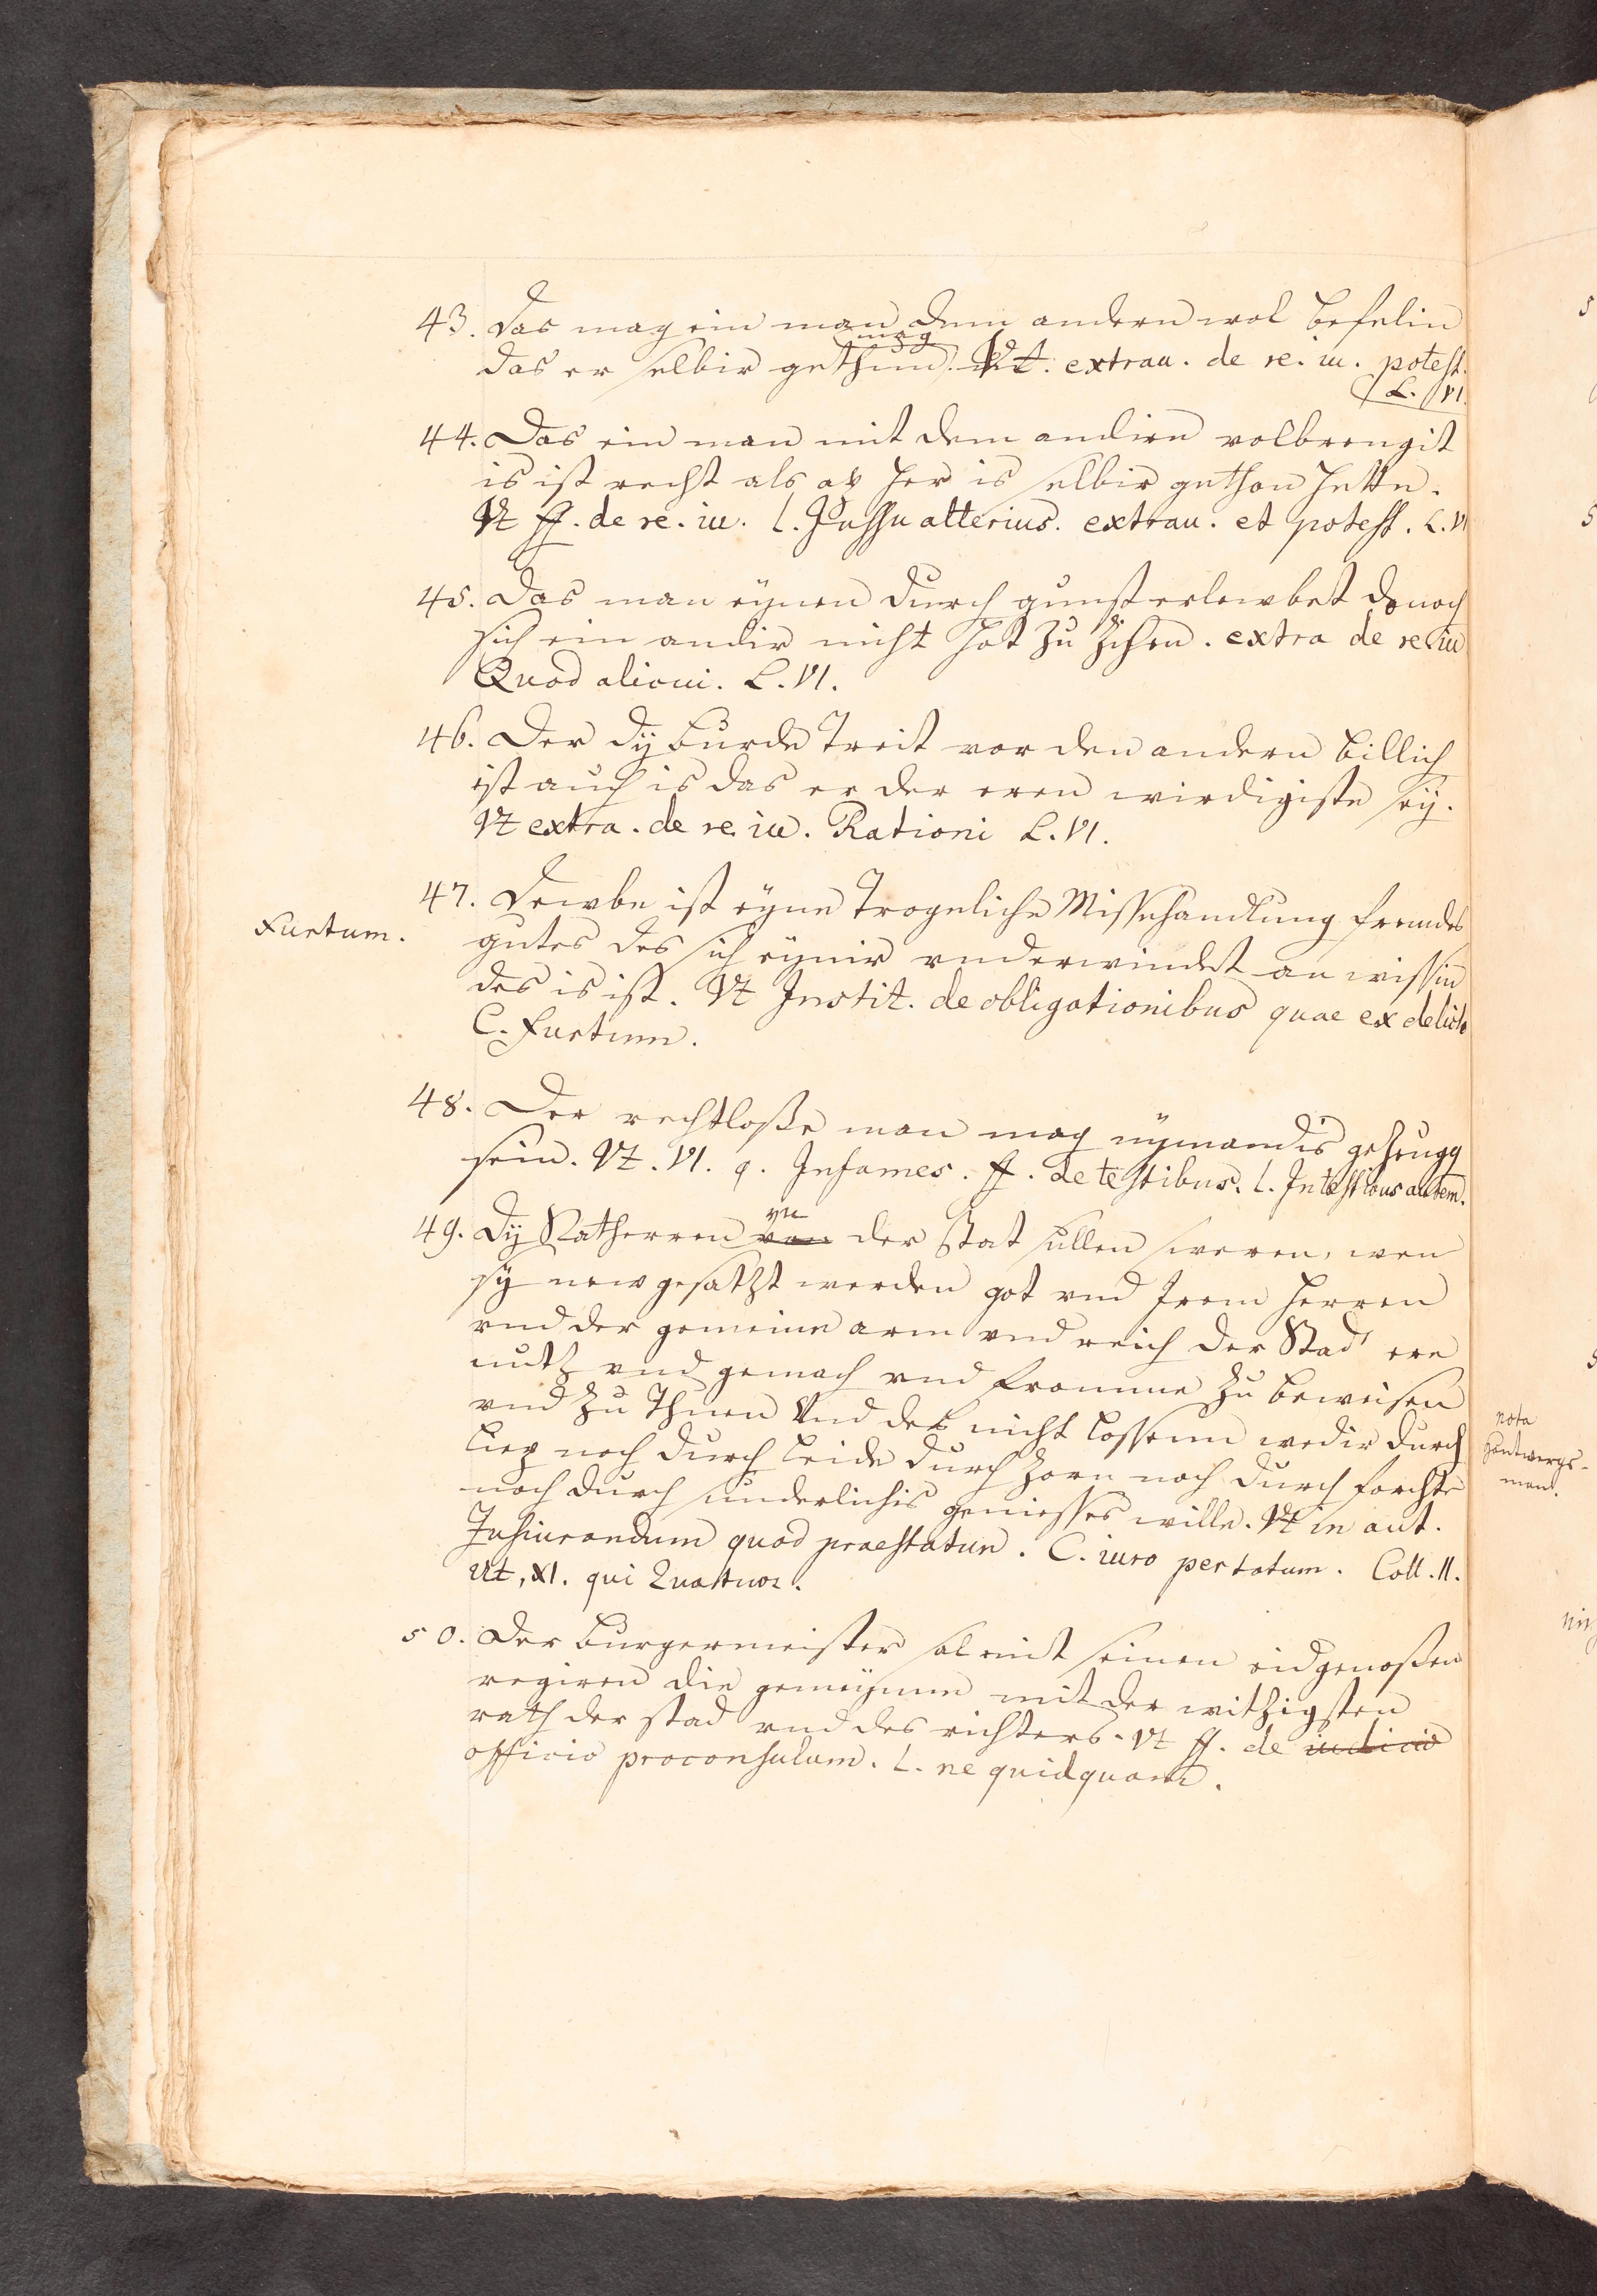 43. Das mag ein man dem andern wol befelin
das er selbir gethun mag. Vt. extrau. de re. iu. potest.
L. VI.
44. Das ein man mit dem andirn volbrengit
is ist recht als ap her is selbir gethon hette.
Vt ff. de re. iu. l. Jussu alterius. extrau. et potest. L. VI
45. Das man eynen durch gunst erlewbet donoch
sich ein andir nicht hot zu zihen. extra de re. iu
Quod alicui. L. VI.
46. Der dy burde treit vor den andern billich
ist auch is das er der eren wirdigiste sy.
Vt extra. de re. iu. Rationi L. VI.
47. Dewbe ist eyne Trogeliche Missehandlung fremdes
Furtum.
gutes des sich eynir vnderwindet an wissin
des is ist. Vt Instit. de obligationibus quae ex delicto
C. Furtum.
48. Der rechtlosse man mag nymandis geheugg
sein. Vt. VI. q. Infames. ff. de testibus. l. In testibus autem.
49. Dy Ratherren yn von der stat sullen sweren, wen
sy new gesatzt werden got vnd Irem herren
vnd der gemeinen arm vnd reich der Stad ere
nutz vnd gemach vnd fromme zu beweisen
vnd zu Thuen Vnd des nicht lossenn wedir durch
liep noch durch leide durch zorn noch durch forchte
noch durch sunderlichis geniesses wille. Vt in aut.
Jusiurandum quod praestatur. C. iuro per totum. Coll. II.
Ut, XI. qui Quattuor.
50. Der burgermeister sal mit seinen eidgenossen
regiren die gemeynen mit der witzigsten
rath der stad vnd des richters. Vt ff. de iudicio
officio proconsulum. L. ne quidquam.
nota
Hantwergs-
man.